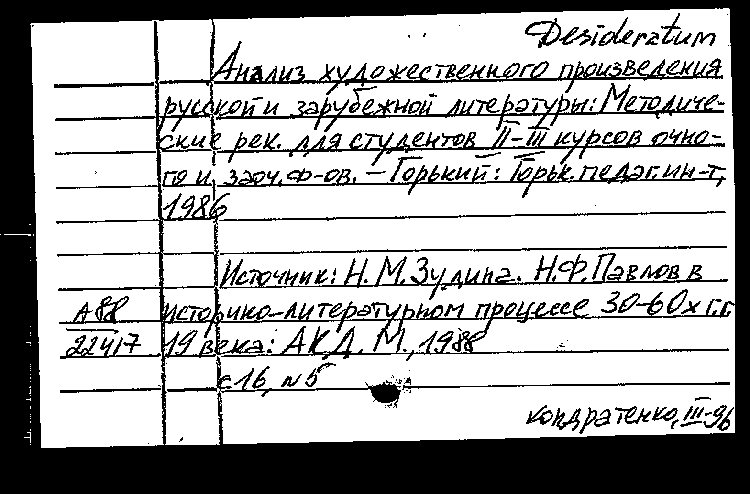 Desideratum
Анализ художественного произведения
русской и зарубежной литературы: Методиче-
ские рек. для студентов II-III курсов очно-
го и заоч. ф-ов. — Горький: Горьк. педаг. ин-т,
1986
Источник: Н.М. Зудина. Н.Ф. Павлов в
А88 историко-литературном процессе 30-60х г.г.
22417 19 века: АКД. М., 1988
с 16, n 5
Кондратенко, III-96